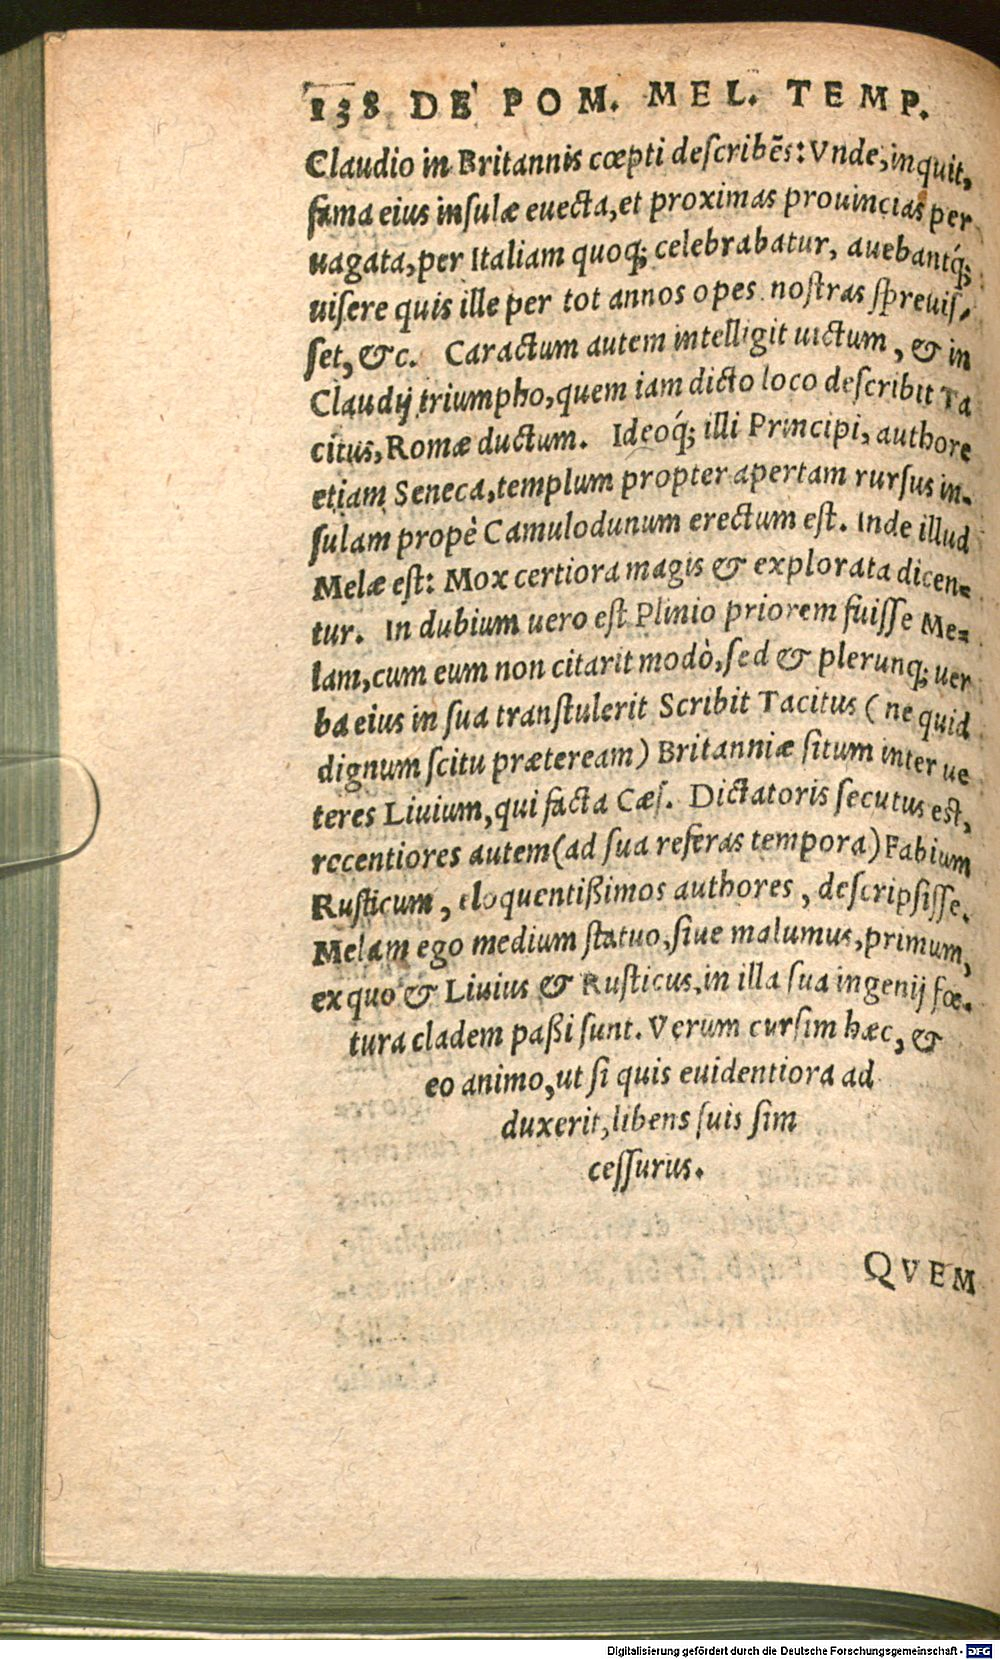 138 DE POM. MEL. TEMP.
Claudio in Britannis cœpti describēs: Vnde, inquit,
fama eius insulæ euecta, et proximas prouincias per
uagata, per Italiam quoq; celebrabatur, auebantq́;
uisere quis ille per tot annos opes nostras spreuis-
set, &c. Caractum autem intelligit uictum, & in
Claudij triumpho, quem iam dicto loco describit Ta
citus, Romæ ductum. Ideoq́; illi Principi, authore
etiam Seneca, templum propter apertam rursus in-
sulam propè Camulodunum erectum est. Inde illud
Melæ est: Mox certiora magis & explorata dicen-
tur. In dubium uero est Plinio priorem fuisse Me-
lam, cum eum non citarit modò, sed & plerunq; uer
ba eius in sua transtulerit Scribit Tacitus (ne quid
dignum scitu præteream) Britanniæ situm inter ue
teres Liuium, qui facta Cæs. Dictatoris secutus est,
recentiores autem (ad sua referas tempora) Fabium
Rusticum, eloquentißimos authores, descripsisse.
Melam ego medium statuo, siue malumus, primum,
ex quo & Liuius & Rusticus, in illa sua ingenij fœ-
tura cladem paßi sunt. Verum cursim hæc, &
eo animo, ut si quis euidentiora ad
duxerit, libens suis sim
cessurus.
QVEM
Digitalisierung gefördert durch die Deutsche Forschungsgemeinschaft - DFG